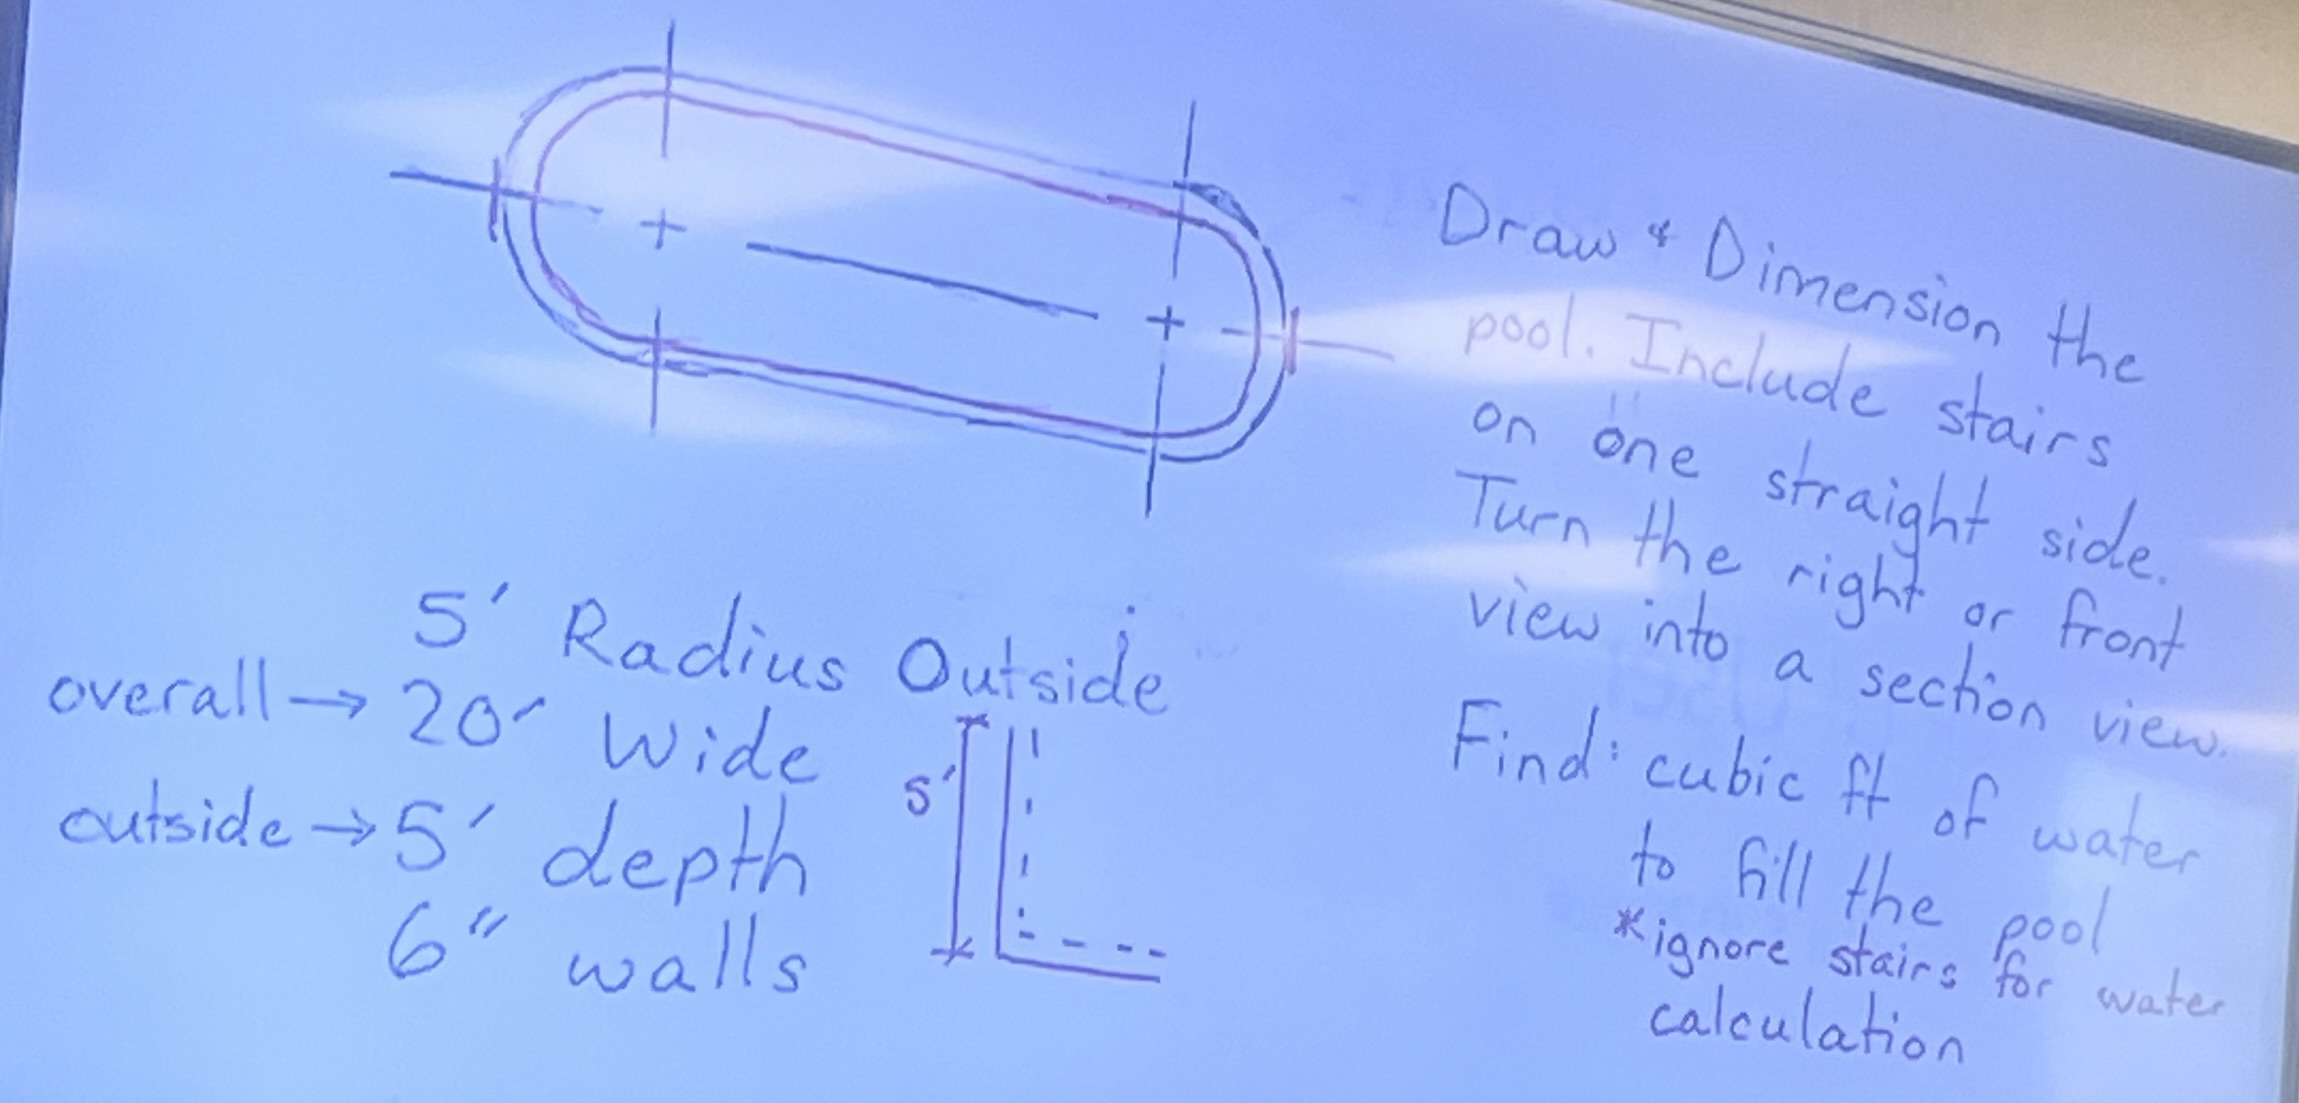 Draw & Dimension the
pool. Include stairs
on one straight side.
Turn the right or front
view into a section view.
Find: cubic ft of water
to fill the pool
*ignore stairs for water
calculation
5' Radius Outside
overall → 20' Wide
outside → 5' depth
6" walls
5'